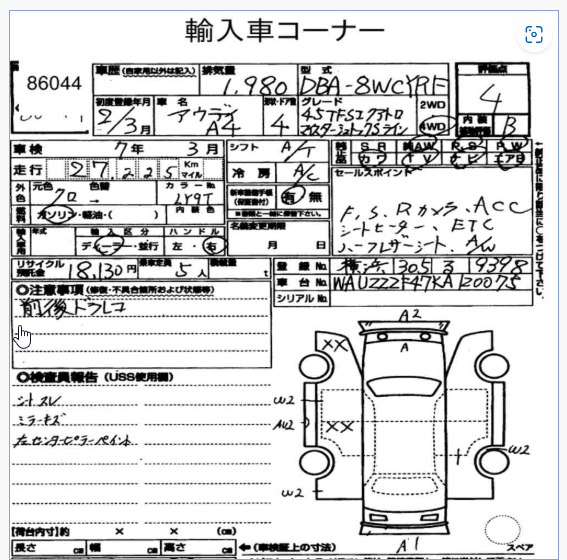 輸入車コーナー
86044
車歴 (自家用以外は記入)
排気量
1,980
型式
DBA-8WCYRF
評価点
4
初度登録年月
2/3月
車名
アウディ
A4
形状・ドア数
4
グレード
45TFSIクワトロ
2WD
4WD
内装
B
車検
7年 3月
シフト
A/T
純正品
S R
純AW
R,S
P,W
カワ
TV
ナビ
エアB
走行
27,225
Km
マイル
冷房
A/C
セールスポイント
外色
元色
クロ
色替
→
カラーNo.
LY9T
新車整備手帳
(保証書付)
有 無
※書類と一緒に保管下さい。
F,S,Rカメラ、ACC
シートヒーター、ETC
ハーフレザーシート、A/W
燃料
ガソリン・軽油・( )
内装色
名義変更期限
月 日
輸入車用
年式
輸入区分
ディーラー・並行
ハンドル
左・右
リサイクル預託金
18,130円
乗車定員
5人
積載量
t
登録No.
横浜 305 る 9398
車台No.
WAUZZZF47KA120075
シリアルNo.
◎注意事項 (修復・不具合箇所および状態等)
前後ドラレコ
◎検査員報告 (USS使用欄)
シートスレ
ミラーキズ
左センターピラーペイント
A2
XX
A
W2
AW2
XX
W2
W2
A1
【荷台内寸】約 × × (cm)
長さ cm 幅 cm 高さ cm
←(車検証上の寸法)
スペア